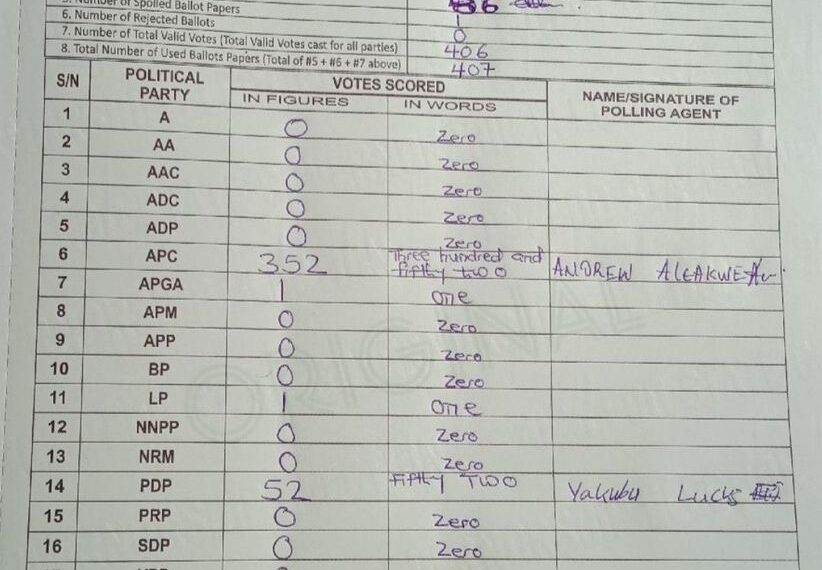 5. Number of Spoiled Ballot Papers 1
6. Number of Rejected Ballots 0
7. Number of Total Valid Votes (Total Valid Votes cast for all parties) 406
8. Total Number of Used Ballots Papers (Total of #5 + #6 + #7 above) 407
S/N POLITICAL PARTY VOTES SCORED NAME/SIGNATURE OF POLLING AGENT
IN FIGURES IN WORDS
1 A 0 Zero
2 AA 0 Zero
3 AAC 0 Zero
4 ADC 0 Zero
5 ADP 0 Zero
6 APC 352 Three hundred and fifty two ANDREW
7 APGA 1 One
8 APM 0 Zero
9 APP 0 Zero
10 BP 0 Zero
11 LP 1 One
12 NNPP 0 Zero
13 NRM 0 Zero
14 PDP 52 Fifty Two Yakubu Lucks
15 PRP 0 Zero
16 SDP 0 Zero
ORIGINAL